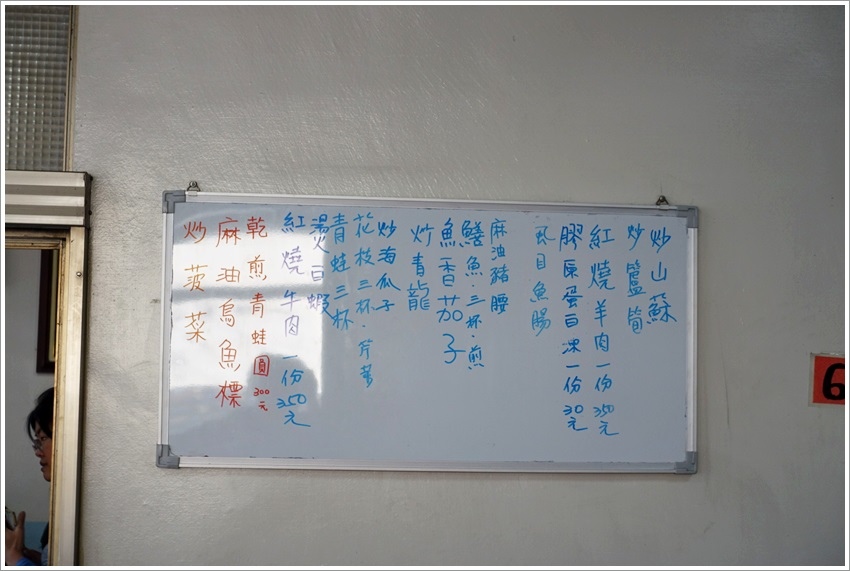 炒山蘇
炒蘆筍
紅燒羊肉一份350元
膠原蛋白凍一份30元
虱目魚腸
麻油豬腰
鱔魚.三杯.煎
魚香茄子
炒青龍
炒海瓜子
花枝三杯.芹菜
青蛙三杯
燙白蝦
紅燒牛肉一份350元
乾煎青蛙圓300元
麻油烏魚標
炒菠菜
6